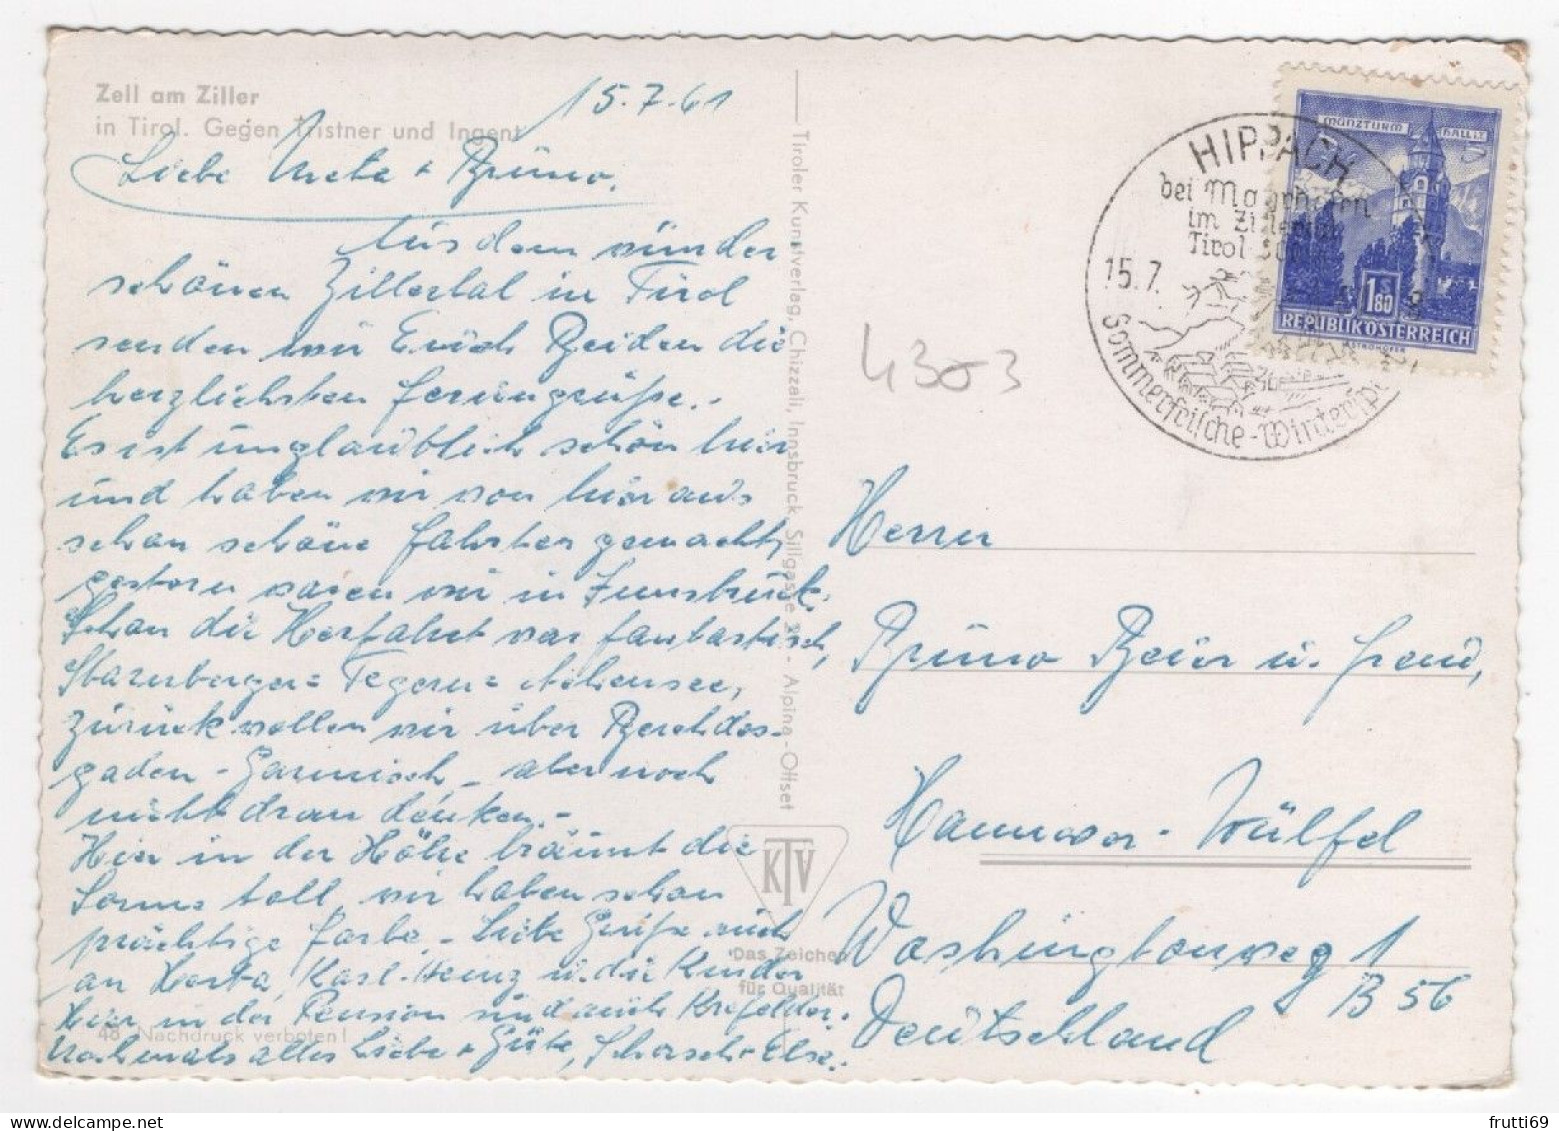 Zell am Ziller
in Tirol. Gegen Tristner und Ingent
15.7.61
Liebe Greta + Brüno.
Aus dem wünder
schönen Zillertal in Tirol
senden wir Euch Beiden die
herzlichsten Feriengrüße.-
Es ist ünglaüblich schön hier
und haben wir von hier aus
schon schöne Fahrten gemacht,
gestern waren wir in Innsbrück.
Schon die Herfahrt war fantastisch,
Starnberger= Tegern= Achensee,
zürück wollen wir über Berchtes-
gaden - Garmisch - aber noch
nicht dran denken.-
Hier in der Höhe bräünt die
Sonne toll, wir haben schon
prächtige Farbe. - Liebe Grüße auch
an Herta, Karl-Heinz ü. die Kinder
Hier in der Pension sind auch Krefelder.
Nochmals alles Liebe + Güte, + Else.
48 Nachdruck verboten!
Tiroler Kunstverlag, Chizzali, Innsbruck, Sillgasse - Alpina-Offset
KTV
Das Zeichen
für Qualität
4303
HIPPACH
bei Mayrhofen
im Zillertal
Tirol
15.7.
Sommerfrische-Winter
MÜNZTURM HALL I.T.
1.80
REPUBLIK ÖSTERREICH
Herrn
Brüno Beier ü. Freud,
Hannover - Wülfel
Washingtonweg 1
B 56
Deütschland
frutti69